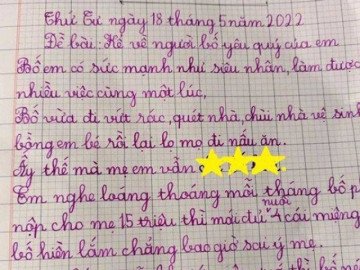 Thứ Tư ngày 18 tháng 5 năm 2022
Đề bài: Kể về người bố yêu quý của em
Bố em có sức mạnh như siêu nhân, làm được
nhiều việc cùng một lúc,
Bố vừa đi vứt rác, quét nhà, chùi nhà vệ sinh
bồng em bé rồi lại lo mọ đi nấu ăn.
Ấy thế mà mẹ em vẫn
Em nghe loáng thoáng mỗi tháng bố p
nộp cho mẹ 15 triệu thì mới đủ nuôi "4 cái miệng
bố hiền lắm chẳng bao giờ sai ý mẹ.